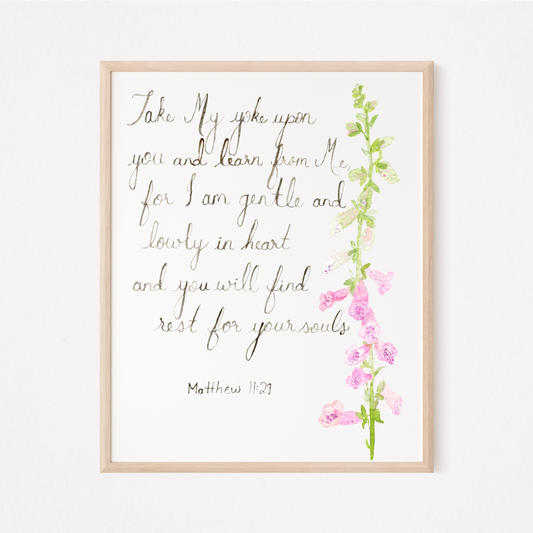 Take My yoke upon
you and learn from Me,
for I am gentle and
lowly in heart
and you will find
rest for your souls
Matthew 11:29